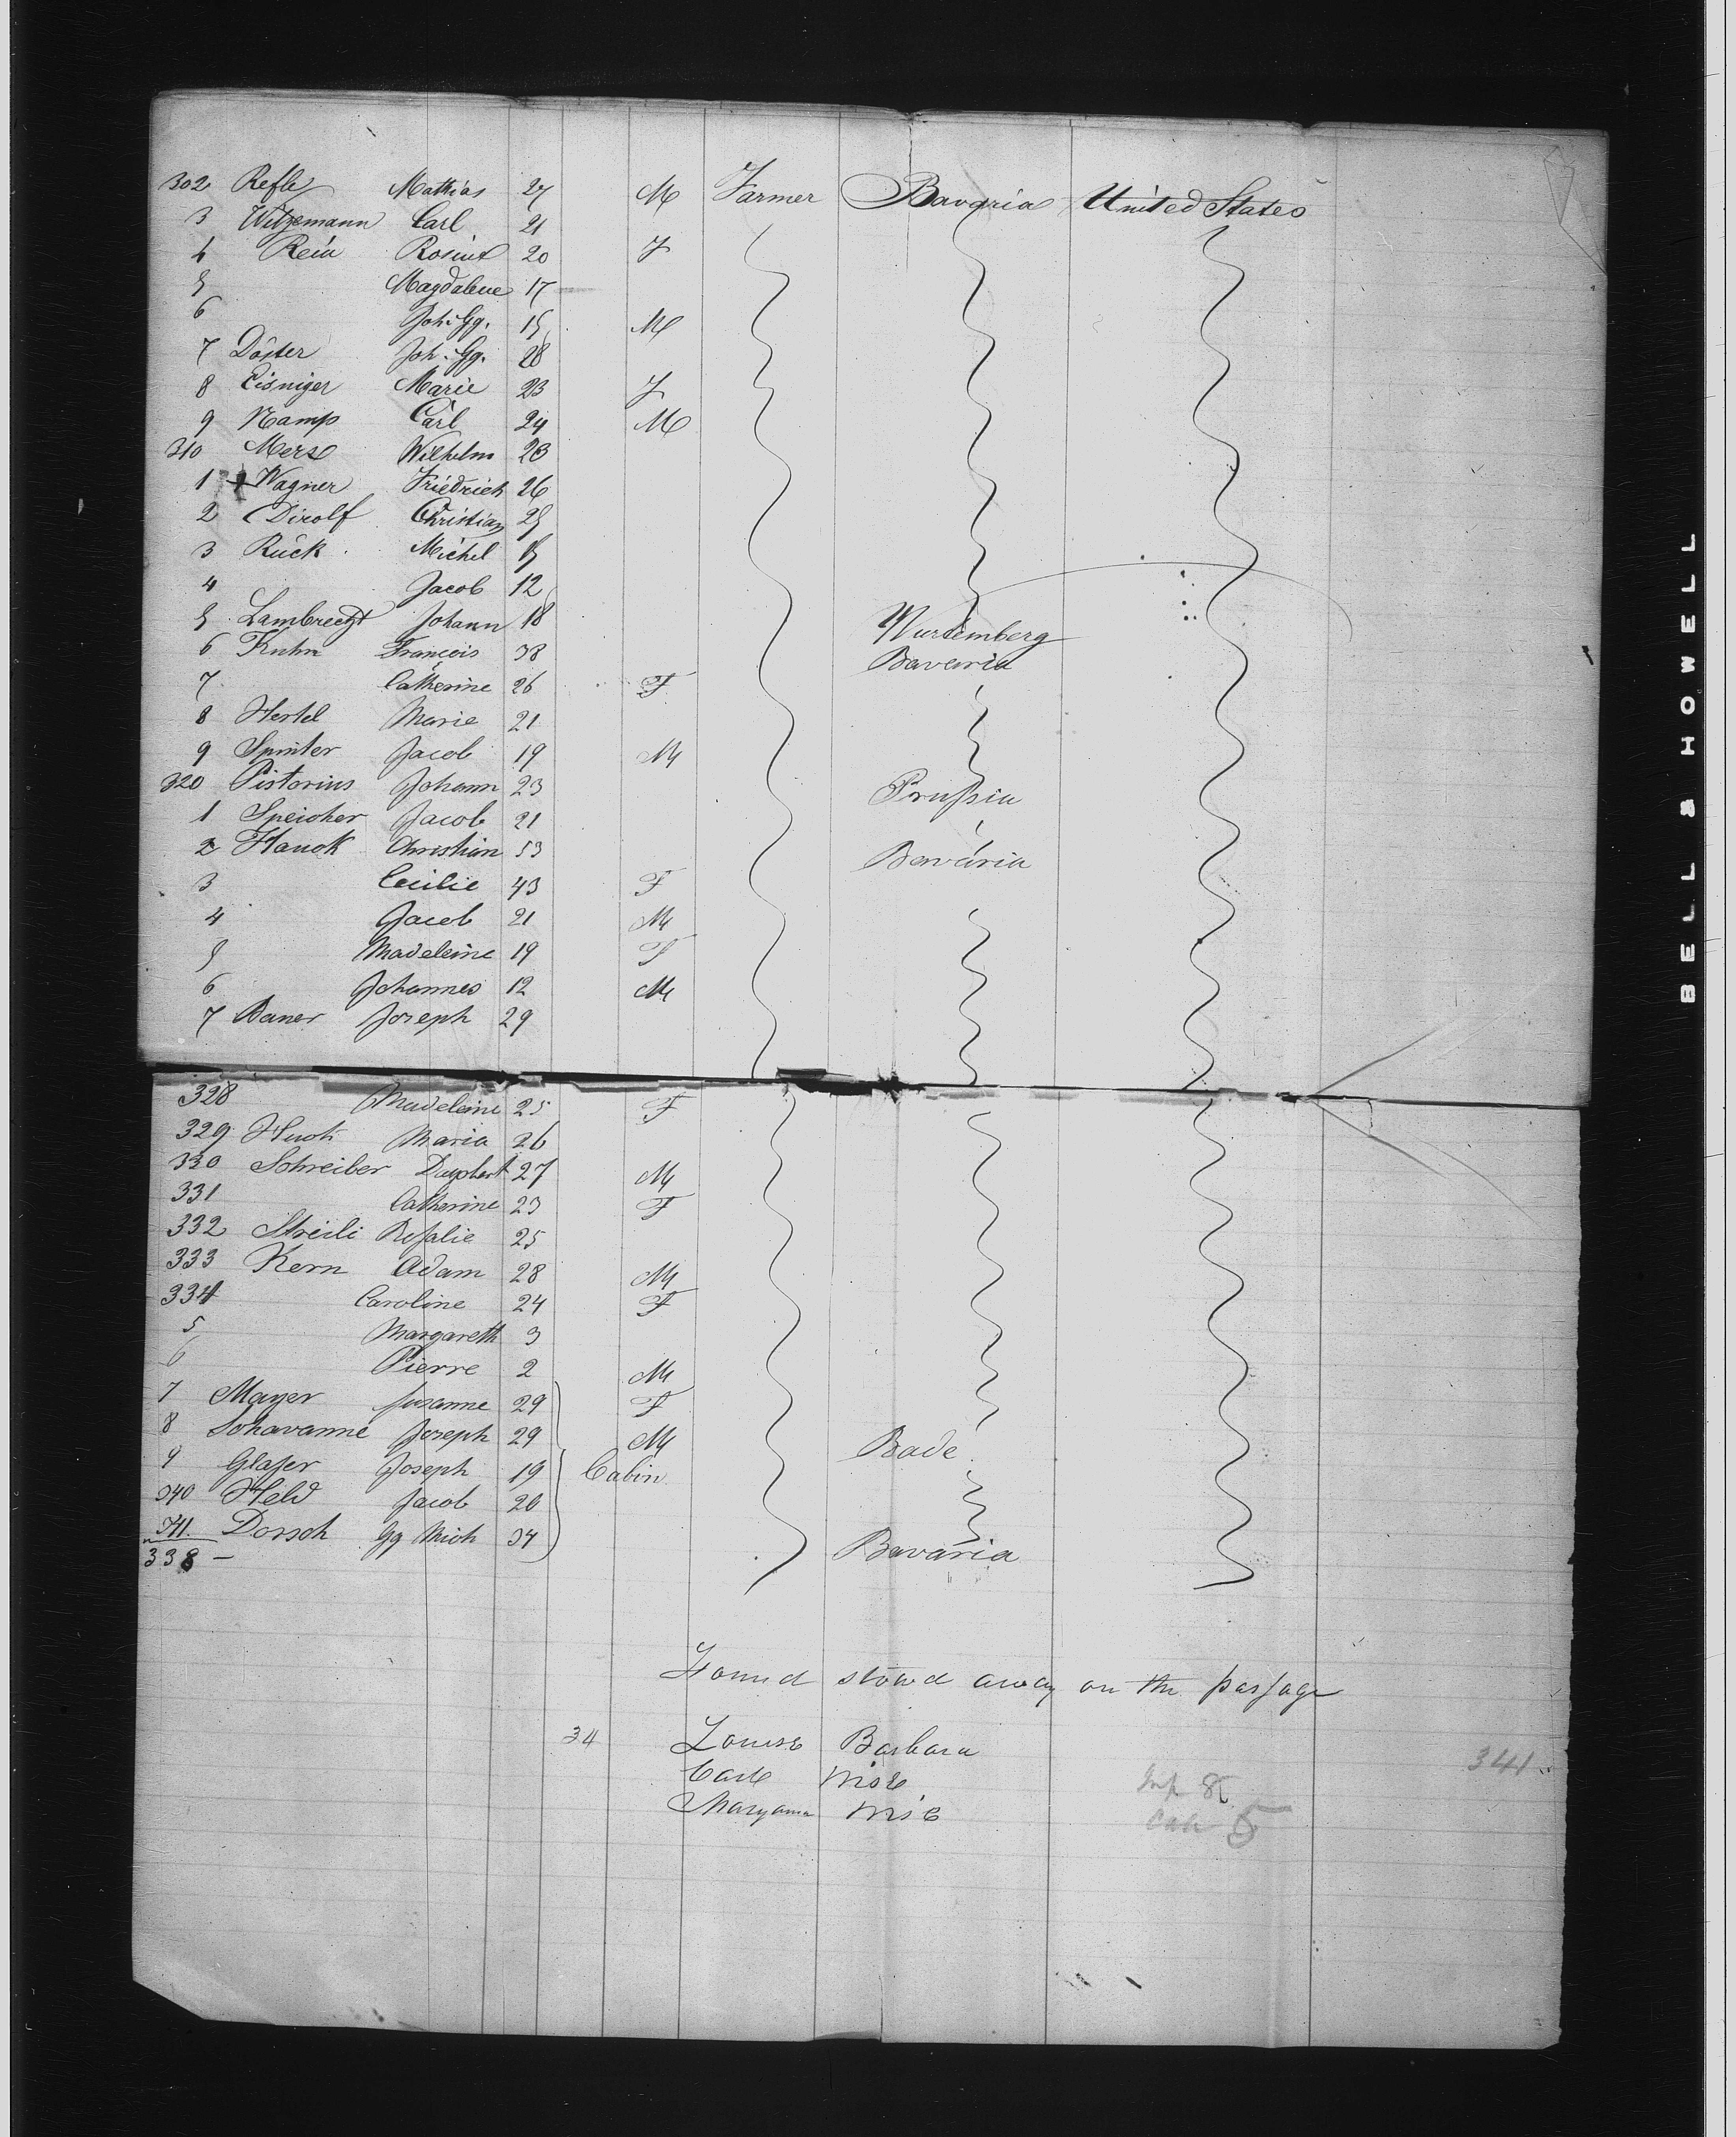 302 Refle Mathias 27 M Farmer Bavaria United States
3 Witzemann Carl 21
4 Rein Rosine 20 F
5 Magdalene 17
6 Joh. Gg. 15 M
7 Joh. Gg. 28
8 Eisniger Marie 23 F
9 Kamp Carl 24 M
310 Wilhelm 23
1 Wagner Friedrich 26
2 Dirolf Christian 25
3 Rück Michel
4 Jacob 12
5 Lambrecht Johann 18 Wurtemberg
6 Kuhn François 38 Bavaria
7 Catherine 26 F
8 Hertel Marie 21
9 Jacob 19 M
320 Pistorius Johann 23 Prussia
1 Speicher Jacob 21
2 Hauck Christian 53 Bavaria
3 Cecilie 43 F
4 Jacob 21 M
5 Madeleine 19 F
6 Johannes 12 M
7 Bauer Joseph 29
328 Madeleine 25 F
329 Huck Maria 26
330 Schreiber 27 M
331 Catherine 23 F
332 Streili Rosalie 25
333 Kern Adam 28 M
334 Caroline 24 F
5 Margareth 3
6 Pierre 2 M
7 Mayer Susanne 29 F
8 Schavanne Joseph 29 M Bade
9 Glaser Joseph 19 Cabin
340 Held Jacob 20
341. Dorsch Gg Mich 34 Bavaria
338 —
Found stowd away on the passage
34 Louise Barbara
341
Maryanna
5
BELL & HOWELL